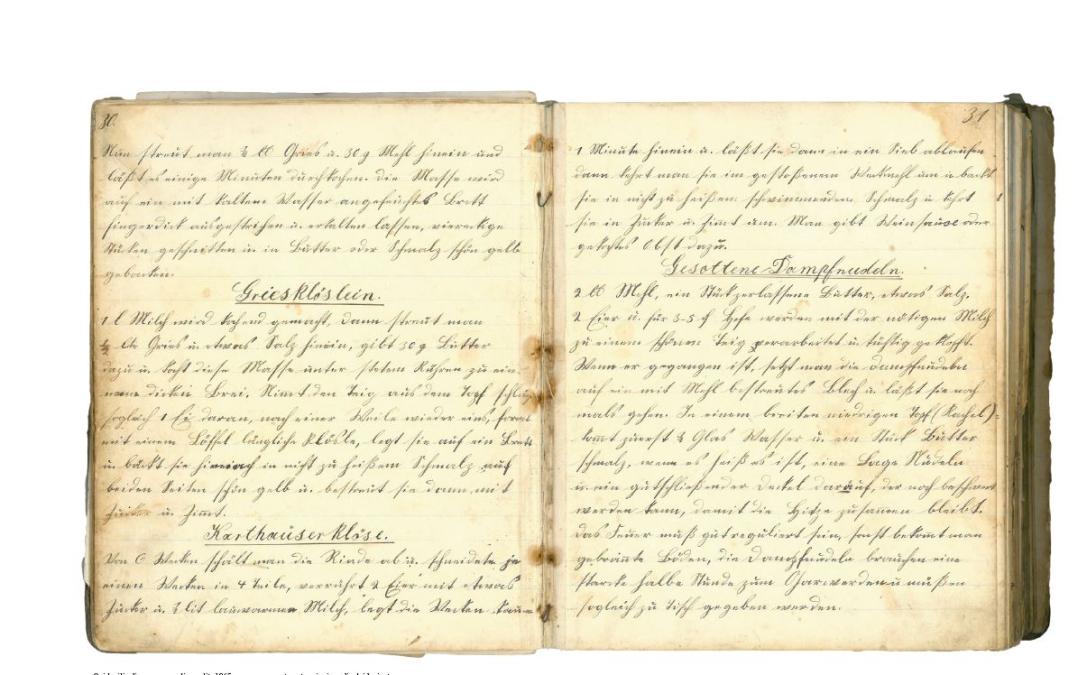 30.
Nun streut man ½ ℔ Gries u. 30 g Mehl hinein und
läßt es einige Minuten durchkochen. die Masse wird
auf ein mit kaltem Wasser angefeuchtetes Brett
fingerdick ausgestrichen u. erkalten lassen, viereckige
Stücken geschnitten u. in Butter oder Schmalz schön gelb
gebacken.
Griesklöslein.
1 l Milch wird kochend gemacht, dann streut man
Gries u. etwas Salz hinein, gibt 50 g Butter
dazu u. kocht diese Masse unter stetem Rühren zu ein
dicken Brei. Nimmt den Teig aus dem Topf
sogleich 1 Ei daran, nach einer Weile wieder eins, formt
mit einem Löffel längliche Klösle, legt sie auf ein Brett
u. bäckt sie hierauf in nicht zu heißem Schmalz auf
beiden Seiten schön gelb u. bestreut sie dann mit
Zucker u. Zimmt.
Karthäuserklöse.
Von 6 Wecken schält man die Rinde ab u. schneidete je
einen Wecken in 4 Teile, verrührt 2 Eier mit etwas
Zucker u. ½ lit lauwarmen Milch, legt die Wecken
31
1 Minute hinein u. läßt sie dann in ein Sieb ablaufen
dann kehrt man sie im gestoßenem Weckmehl um u. backt
sie in nicht zu heißen schwimmenden Schmalz u. kehrt
sie in Zucker u. Zimmt um. Man gibt Weinsauce oder
gekochtes Obst dazu.
Gesottene Dampfnudeln.
2 ℔ Mehl, ein Stück zerlassene Butter, etwas Salz,
2 Eier u. für 3-5 ₰ Hefe werden mit der nötigen Milch
zu einem schönen Teig verarbeitet u. tüchtig geklopft.
Wenn er gegangen ist, setzt man die Dampfnudeln
auf ein mit Mehl bestreutes Blech u. läßt sie noch
mals gehen. In einem breiten niedrigen Topf (Kachel)
kommt zuerst ½ Glas Wasser u. ein Stück Butter
schmalz, wenn es heiß es ist, eine Lage Nudeln
u. ein gutschließender Deckel darauf, der noch beschwert
werden kann, damit die Hitze zusammen bleibt.
Das Feuer muß gut reguliert sein, sonst bekomt man
gebrannte Böden, die Dampfnudeln brauchen eine
starke halbe Stunde zum Garwerden u. müßen
sogleich zu Tisch gegeben werden.